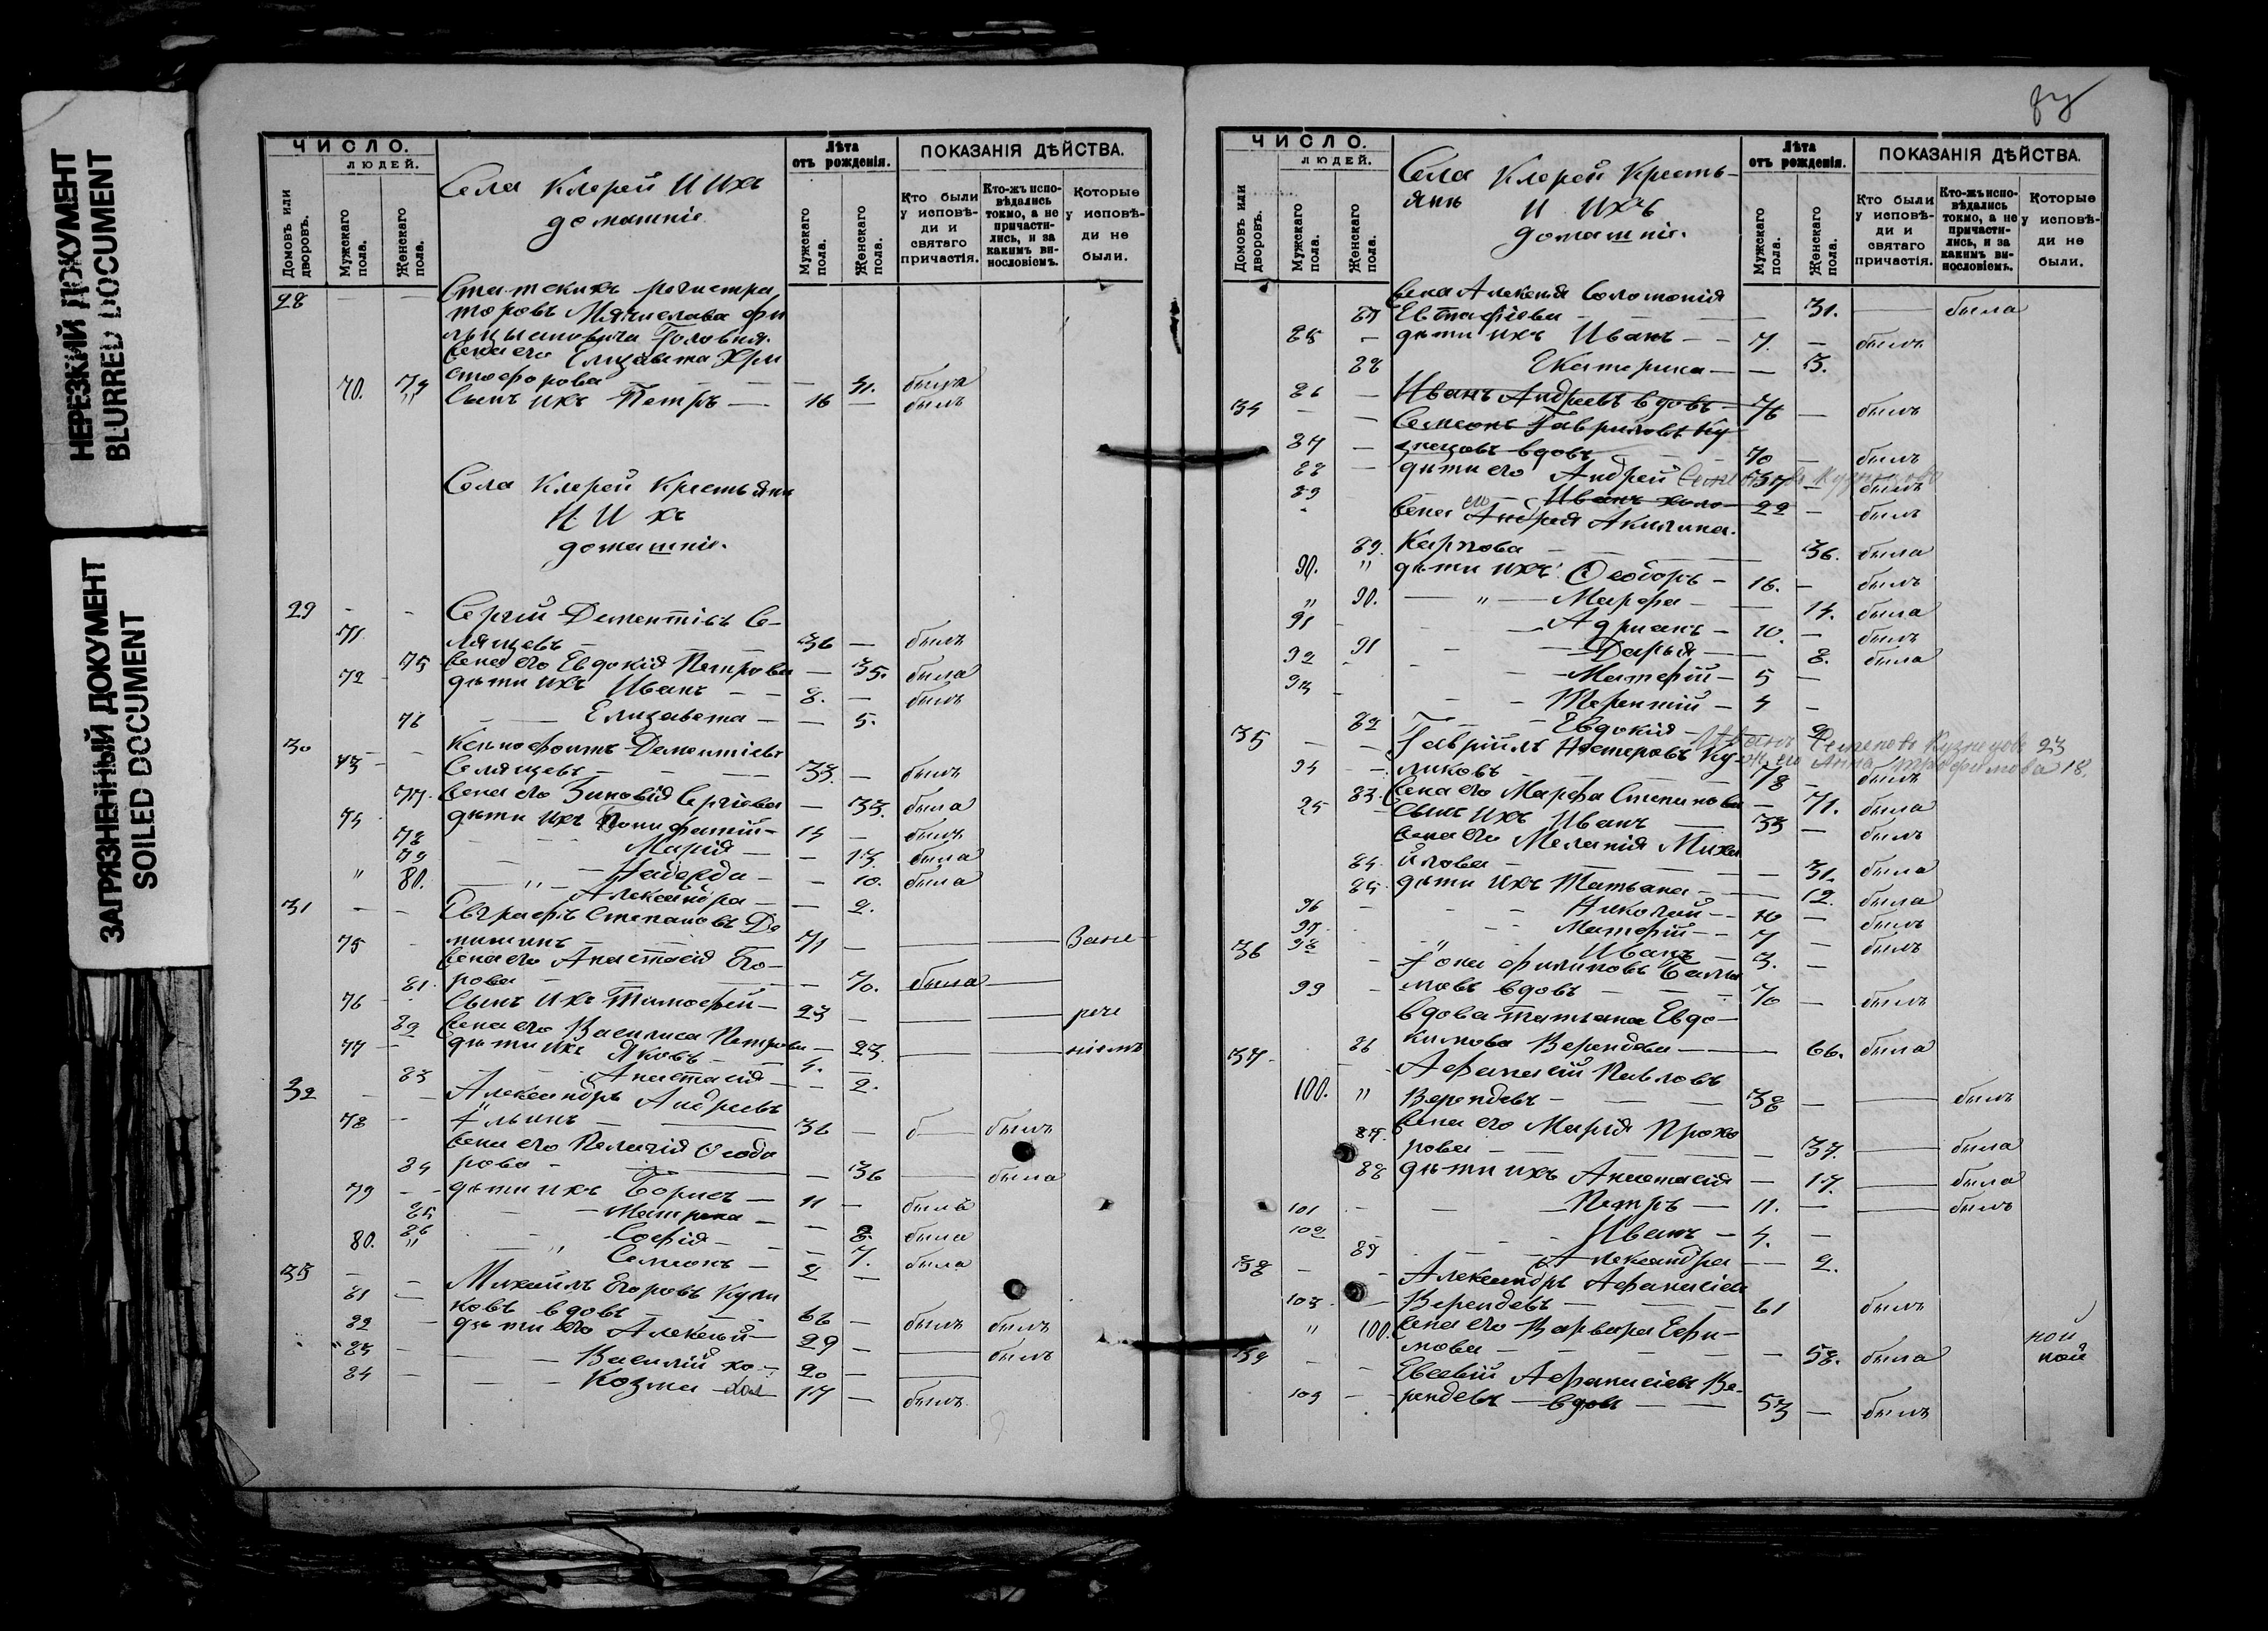 НЕРЕЗКИЙ ДОКУМЕНТ
BLURRED DOCUMENT
ЗАГРЯЗНЕННЫЙ ДОКУМЕНТ
SOILED DOCUMENT
ЧИСЛО.
ЛЮДЕЙ.
Домовъ или дворовъ.
Мужскаго пола.
Женскаго пола.
Села Клерей И Ихъ
домашніе
Лѣта
отъ рожденія.
Мужскаго пола.
Женскаго пола.
ПОКАЗАНІЯ ДѢЙСТВА.
Кто были у исповѣди и святаго причастія.
Кто-жъ исповѣдались токмо, а не причастились, и за какимъ винословіемъ.
Которые у исповѣди не были.
28 — —
торовъ
Головня.
жена его Елизавета Хри
70. 74 стофорова — — 41. была
" сынъ ихъ Петръ — 16 — былъ
Села Клерей Крестьянъ
И Ихъ
домашніе.
29 - - Сергій Дементіевъ Се-
71 лящевъ — 36 — былъ
75 жена его Евдокія Петрова — 35. была
72 - дѣти ихъ Иванъ — 8. — былъ
76 Елизавета — — 5.
30 - Ксенофонтъ Дементіевъ
73 - Селящевъ — 33. — былъ
77. жена его Зиновія Сергіева — 33. была
74 дѣти ихъ Вонифатій — 14 — былъ
78 Марія — — 13. была
79 Надежда — — 10. была
" 80. Александра — — 2.
31 - - Евграфъ Степановъ
75 - 71 — — — Зане
жена его Анастасія Его-
81. рова — — 70. была —
76 - сынъ ихъ Тимофей — 23 — — — рче
82 жена его Василиса Петрова — 23. — — ніемъ
77 - дѣти ихъ Яковъ — 4. —
83 Анастасія — — 2.
32 - - Александръ Андреевъ
78 - 36 — былъ
жена его Пелагія Ѳеодо
84 рова — — 36 — была
79 - - дѣти ихъ Борисъ — 11 — былъ
85 Матрена — — 8. была
86 Софія — — 7. была
80. " Семіонъ — 2 —
33 - - Михаилъ Егоровъ Кули
81 - ковъ вдовъ — 66 — былъ
82 - дѣти его Алексій — 29 — — былъ
83 - Василій хо- 20 — —
84 - Козма хол 17 — былъ
ЧИСЛО.
ЛЮДЕЙ.
Домовъ или дворовъ.
Мужскаго пола.
Женскаго пола.
Села Клерей Кресть-
янъ И Ихъ
домашніе.
Лѣта
отъ рожденія.
Мужскаго пола.
Женскаго пола.
ПОКАЗАНІЯ ДѢЙСТВА.
Кто были у исповѣди и святаго причастія.
Кто-жъ исповѣдались токмо, а не причастились, и за какимъ винословіемъ.
Которые у исповѣди не были.
жена Алексія Соломонія
87 Евстафіева — — 31. — была
85 - дѣти ихъ Иванъ — 7. — былъ
88 Екатерина — — 3.
86 - Иванъ Андреевъ вдовъ — 76 — былъ
34 - - Семіонъ Гавриловъ Ку
87 - знецовъ вдовъ — 70 — былъ
88 - дѣти его Андрей Семеновъ Кузнецовъ 37 — былъ
89 Иванъ холо- 22 — былъ
жена его Андрея Акилина
89. Карпова — — 36. была
90. " дѣти ихъ Ѳеодоръ — 16. — былъ
" 90. — " — Марфа — — 14. была
91 Адріанъ — 10. — былъ
91 Дарья — — 8. была
92 - Матфій — 5 —
93 - Терентій — 4 —
82 Евдокія — 2
Иванъ Семеновъ Кузнецовъ 23
ж. его Анна Трофимова 18.
35 - - Гавріилъ Нестеровъ Ку-
94 - ликовъ — 78 — былъ
83. жена его Марфа Степанова — 71. была
95 - сынъ ихъ Иванъ — 33 — былъ
жена его Меланія Миха
84. йлова — — 31. была
85. дѣти ихъ Татьана — — 12. была
96 Николай — 10 — былъ
97 Матфій — 7 — былъ
98 " Иванъ — 3. —
36 - Іона Филиповъ
99 - вдовъ — 70 — былъ
вдова Татьана Евдо-
86 кимова Верендева — — 66. была
37 - Афанасій Павловъ
100. " Верендевъ — 38 — — былъ
жена его Марія Прохо
87. рова — — 37. — была
88 дѣти ихъ Анастасія — 17. — была
101 Петръ — 11. — — былъ
102 Иванъ — 4. —
89 Александра — — 2.
38 - - Александръ Афанасіев
103 - Верендевъ — 61 былъ
" 100. жена его Варвара Ефи-
мова — — 58. была
39 - - Евсевій Афанасіевъ Ве-
104 - - рендевъ — вдовъ — 53 — былъ